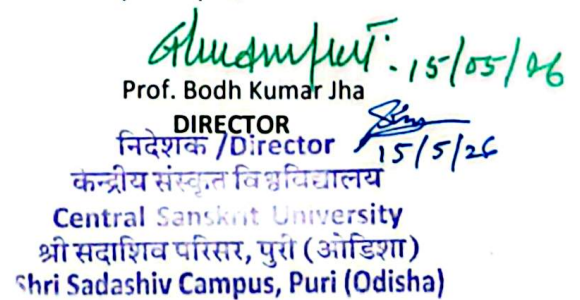 15/05/26
Prof. Bodh Kumar Jha
DIRECTOR
निदेशक /Director
15/5/26
केन्द्रीय संस्कृत विश्वविद्यालय
Central Sanskrit University
श्री सदाशिव परिसर, पुरी (ओडिशा)
Shri Sadashiv Campus, Puri (Odisha)